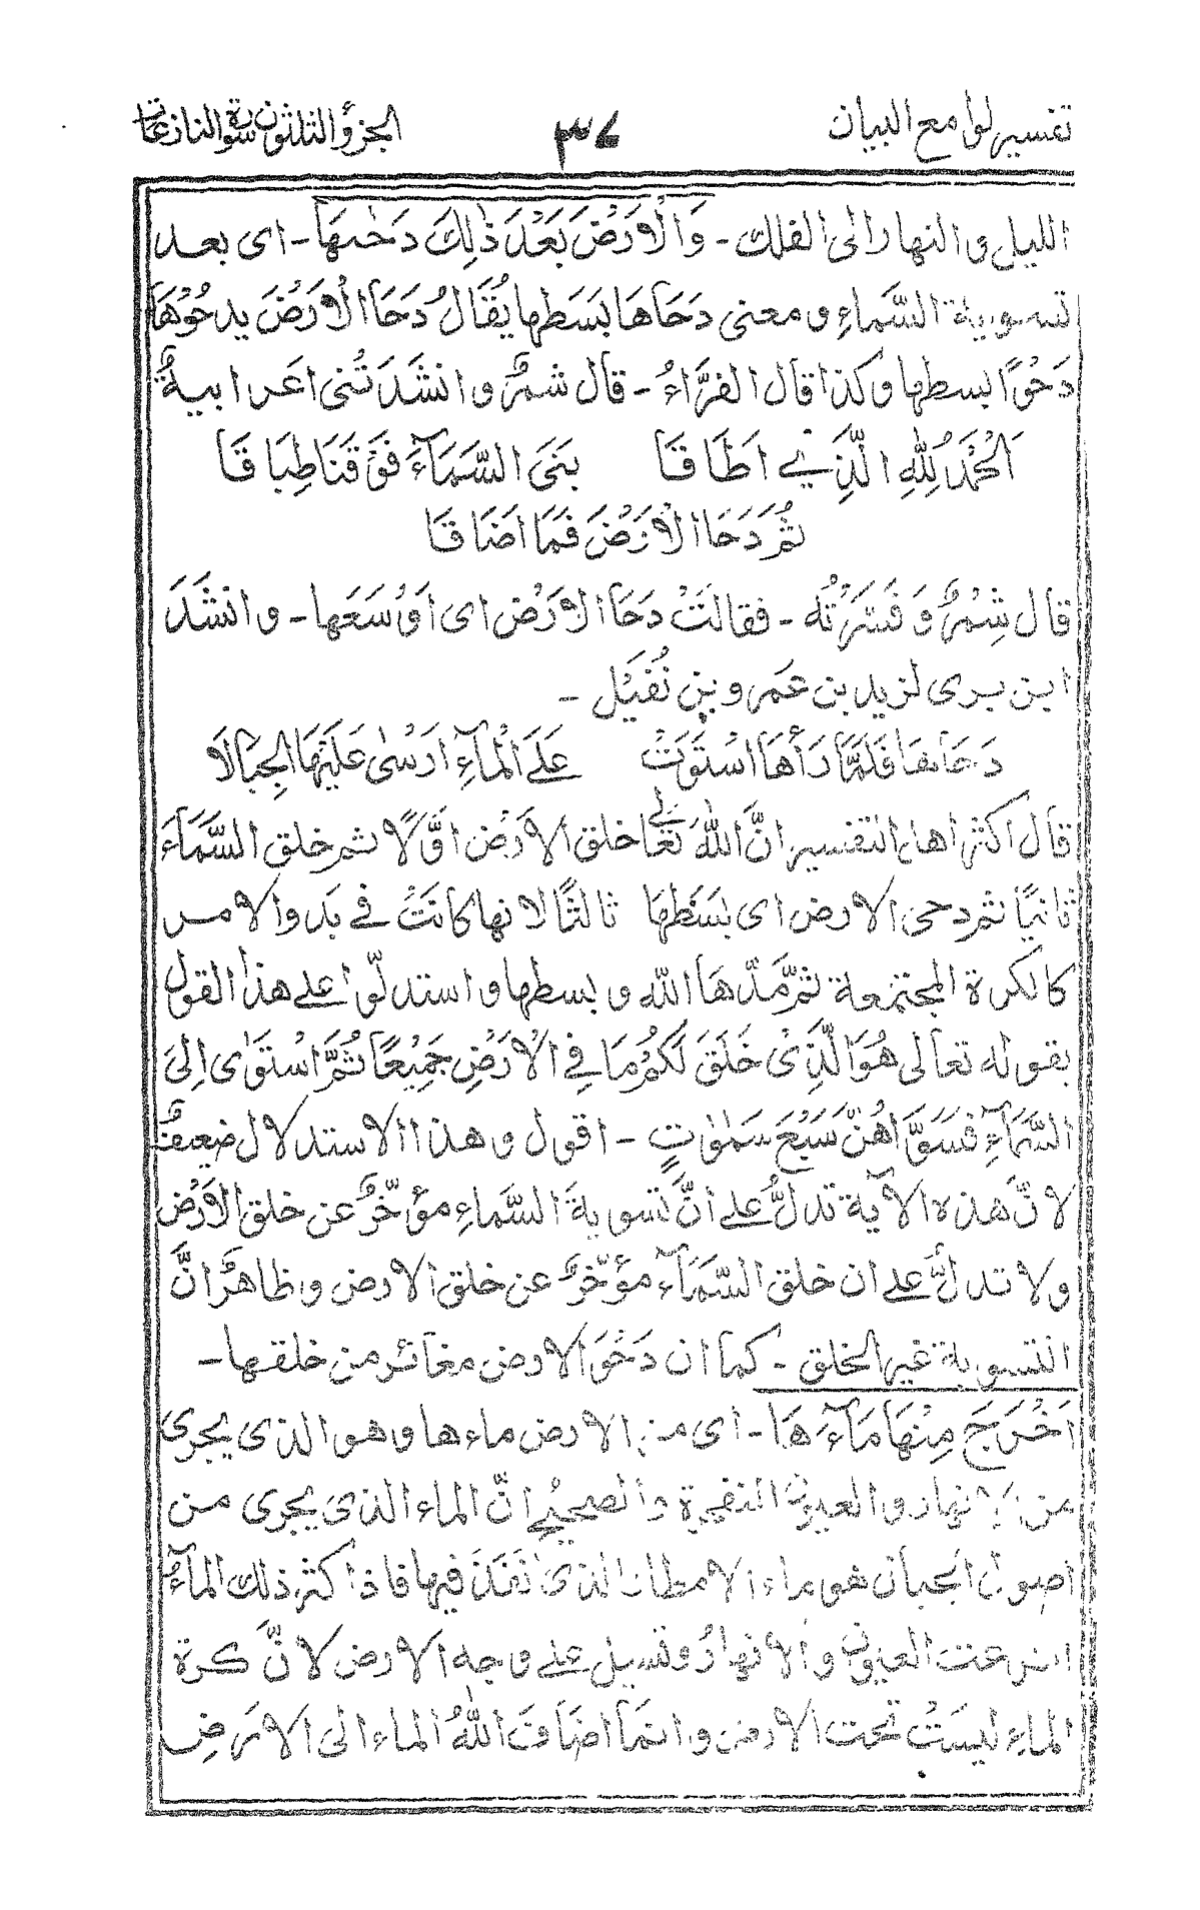 تفسير لوامع البيان ٣٤ الجزؤ الثلثون سورة والنازعات
الليل و النهار الى الفلك - وَالْاَرْضَ بَعْدَ ذٰلِكَ دَحٰىهَا - اى بعد
تسوية السَّماءِ و معنى دَحَاهَا بَسَطها يُقَالُ دَحَا الْاَرْضَ يدحُوْهَا
دَحْوًا بسطها وكذا قال الفرَّاءُ - قال شمرٌ و انشَدَتْنى اعرابيةٌ
اَلْحَمْدُ لِلّٰهِ الَّذِي اَطَاقَا بَنَى السَّمَآءَ فَوْقَنَا طِبَاقَا
ثُمَّ دَحَا الْاَرْضَ فَمَا اَضَاقَا
قال شِمْرٌ وَ فَسَّرَتْهُ - فقالَتْ دَحَا الاَرْضَ اى اَوْسَعَها - و انشَدَ
ابن برى لزيد بن عمرو بن نُفَيْل -
دَحَاهَا فَلَمَّا رَأَهَا اسْتَوَتْ عَلَى الْمَآءِ اَرْسٰى عَلَيْهَا الْجِبَالَا
قال اكثر اهل التفسير انَّ اللهَ تعالى خلق الاَرْض اوَّلًا ثم خلق السَّمَآءَ
ثانيًا ثم دحى الارض اى بَسَطَهَا ثالثًا لانها كانَتْ فى بَدو الامر
كالكرة المجتمعة ثمَّ مَدَّهَا الله و بسطها و استدلّوا على هذا القول
بقوله تعالى هُوَ الَّذِىْ خَلَقَ لَكُمْ مَا فِى الْاَرْضِ جَمِيْعًا ثُمَّ اسْتَوٰى اِلَى
السَّمَآءِ فَسَوَّاهُنَّ سَبْعَ سَمٰوٰتٍ - اقول و هذا الاستدلال ضعيفٌ
لانَّ هذه الآية تدلُّ على انَّ تسويةَ السَّماءِ مؤخّرٌ عن خلق الاَرْض
ولا تدلُّ على ان خلق السَّمَآء مؤخّرٌ عن خلق الارض و ظاهرٌ انَّ
التسوية غير الخلق - كما ان دَحْوَ الارض مغائر من خلقها -
اَخْرَجَ مِنْهَا مَآءَهَا - اى من الارض ماءها و هو الذى يجرى
من الانهار و العيون المتفجرة والصحيح انَّ الماء الذى يجرى من
اصول الجبال هو ماء الامطار الذى نَفَذَ فيها فاذا كثر ذلك المآءُ
انبرعت العيون و الانهارُ و تسيل على وجه الارض لانَّ كرة
الماءِ ليسَتْ تحت الارض و انما اضَافَ اللهُ الماء الى الارض